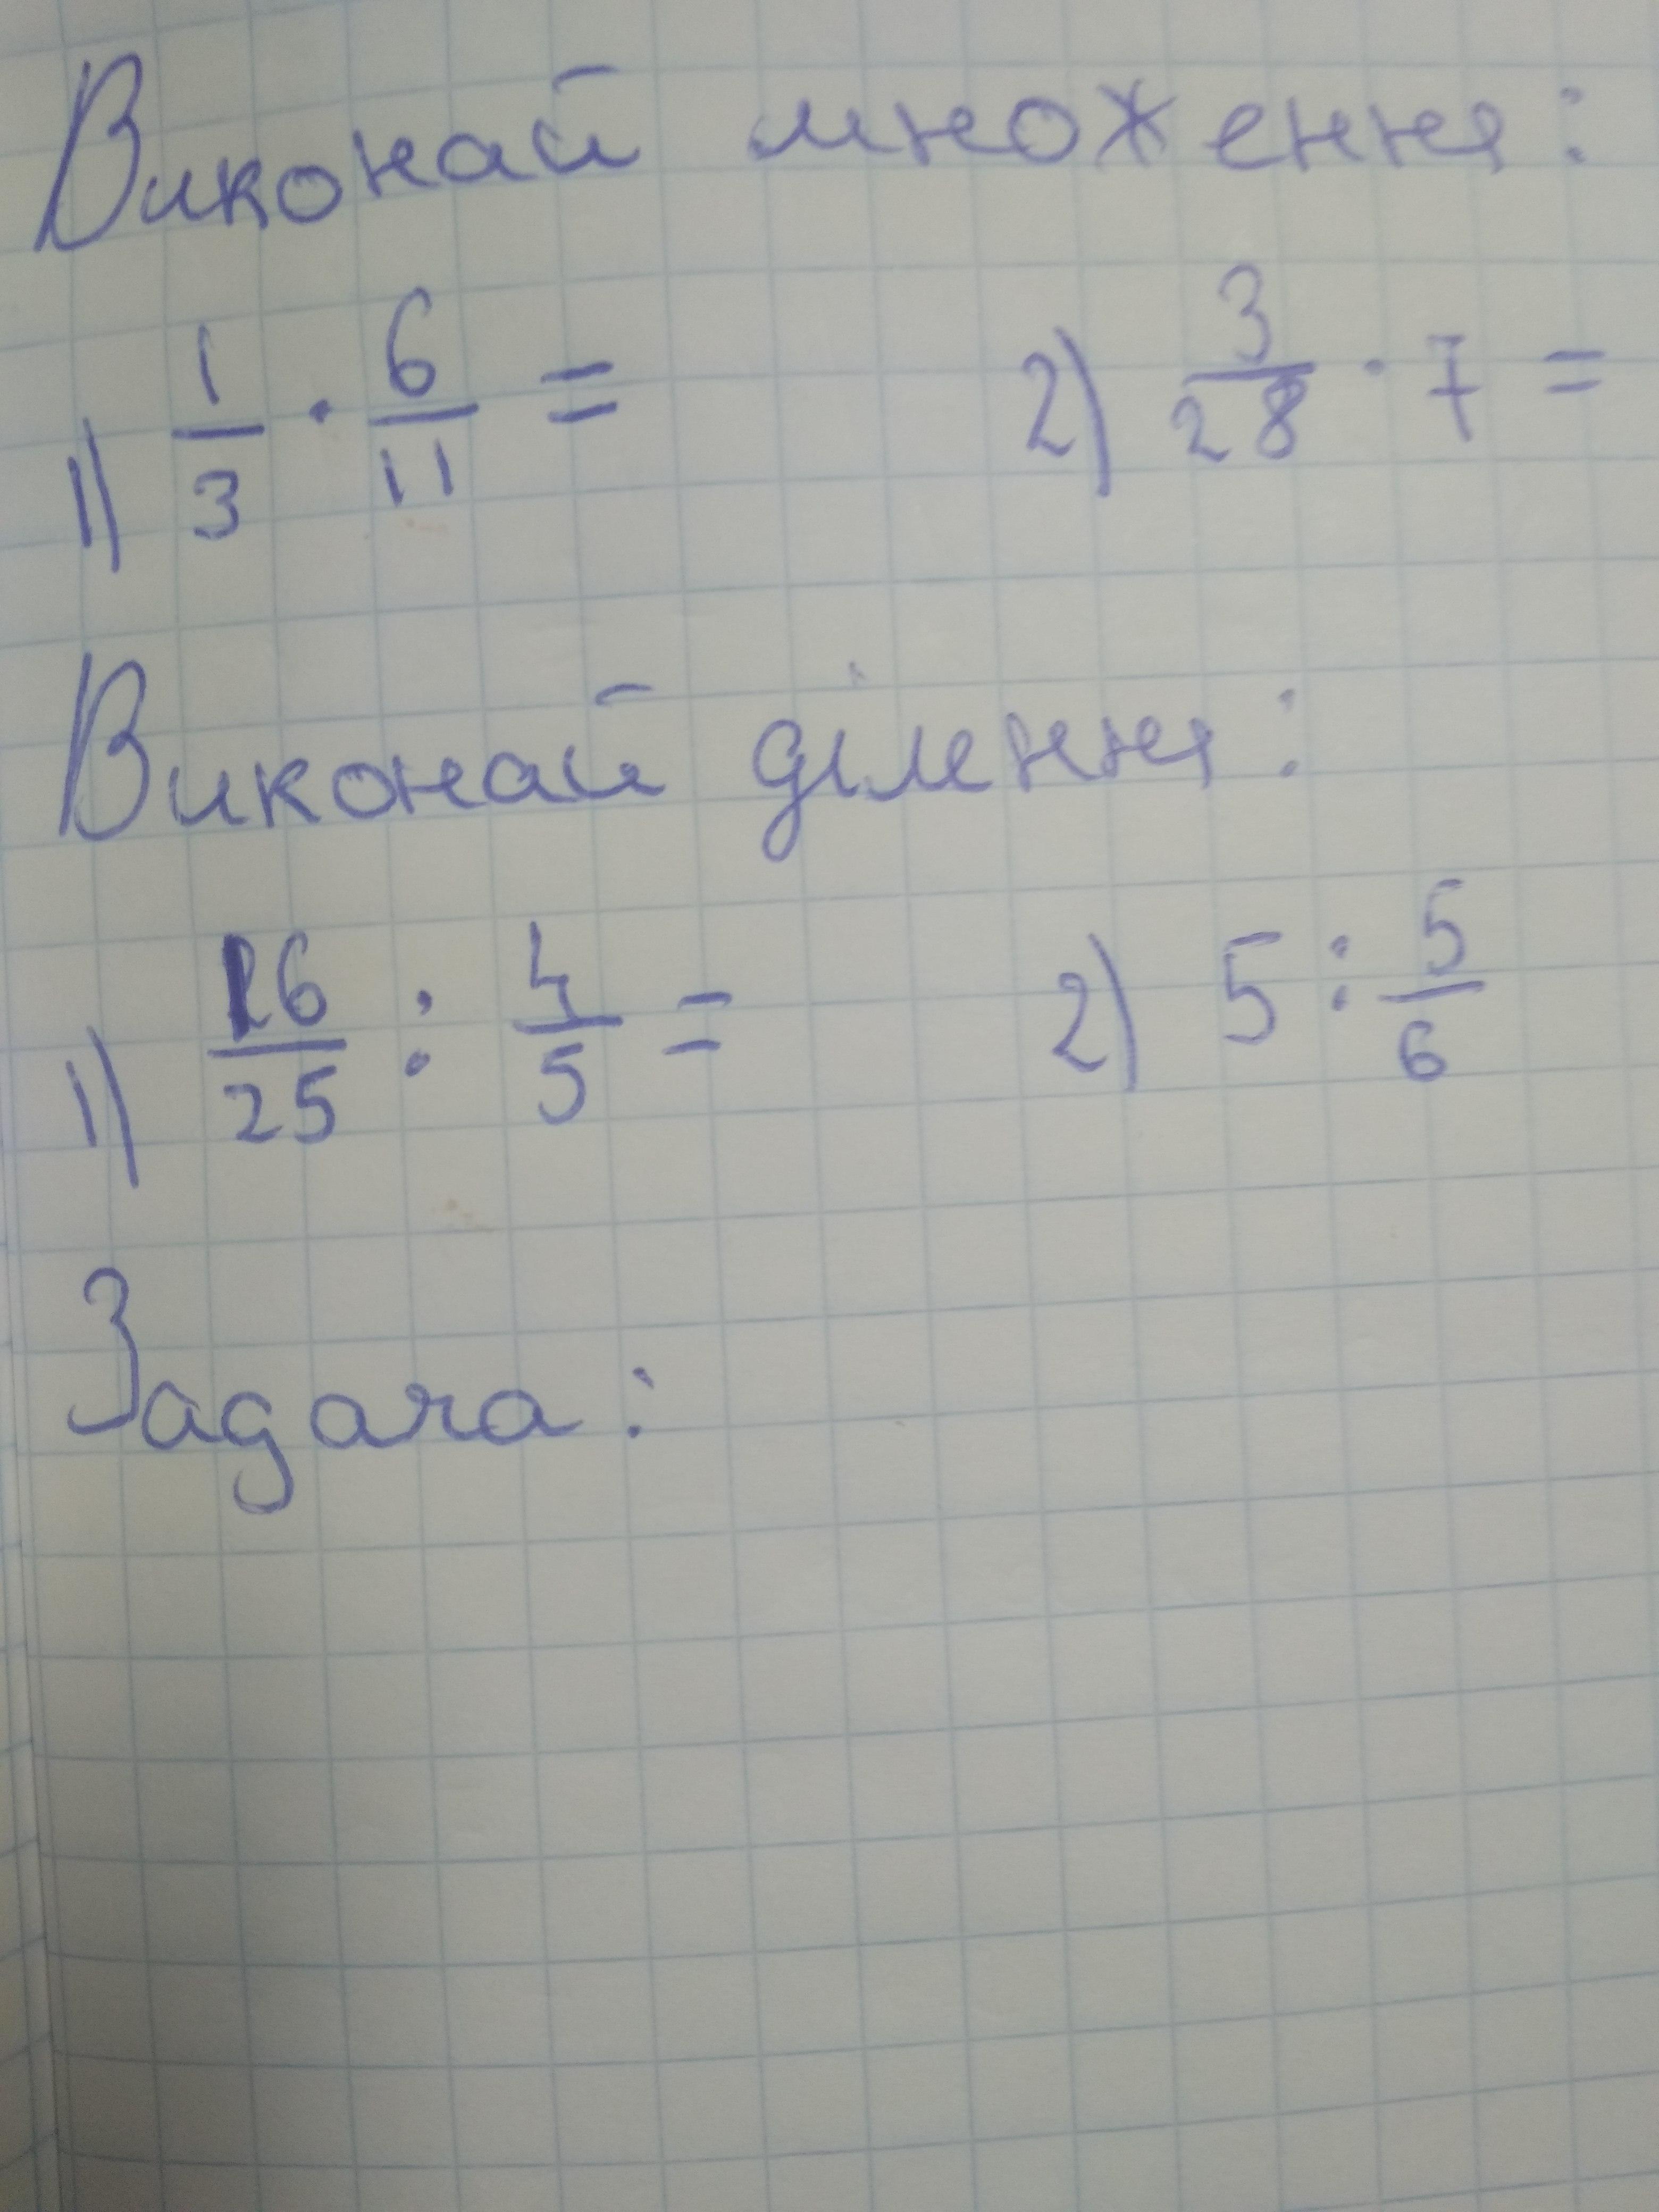 Виконай множення:
1) 1/3 · 6/11 = 2) 3/28 · 7 =
Виконай ділення:
1) 16/25 : 4/5 = 2) 5 : 5/6
Задача: